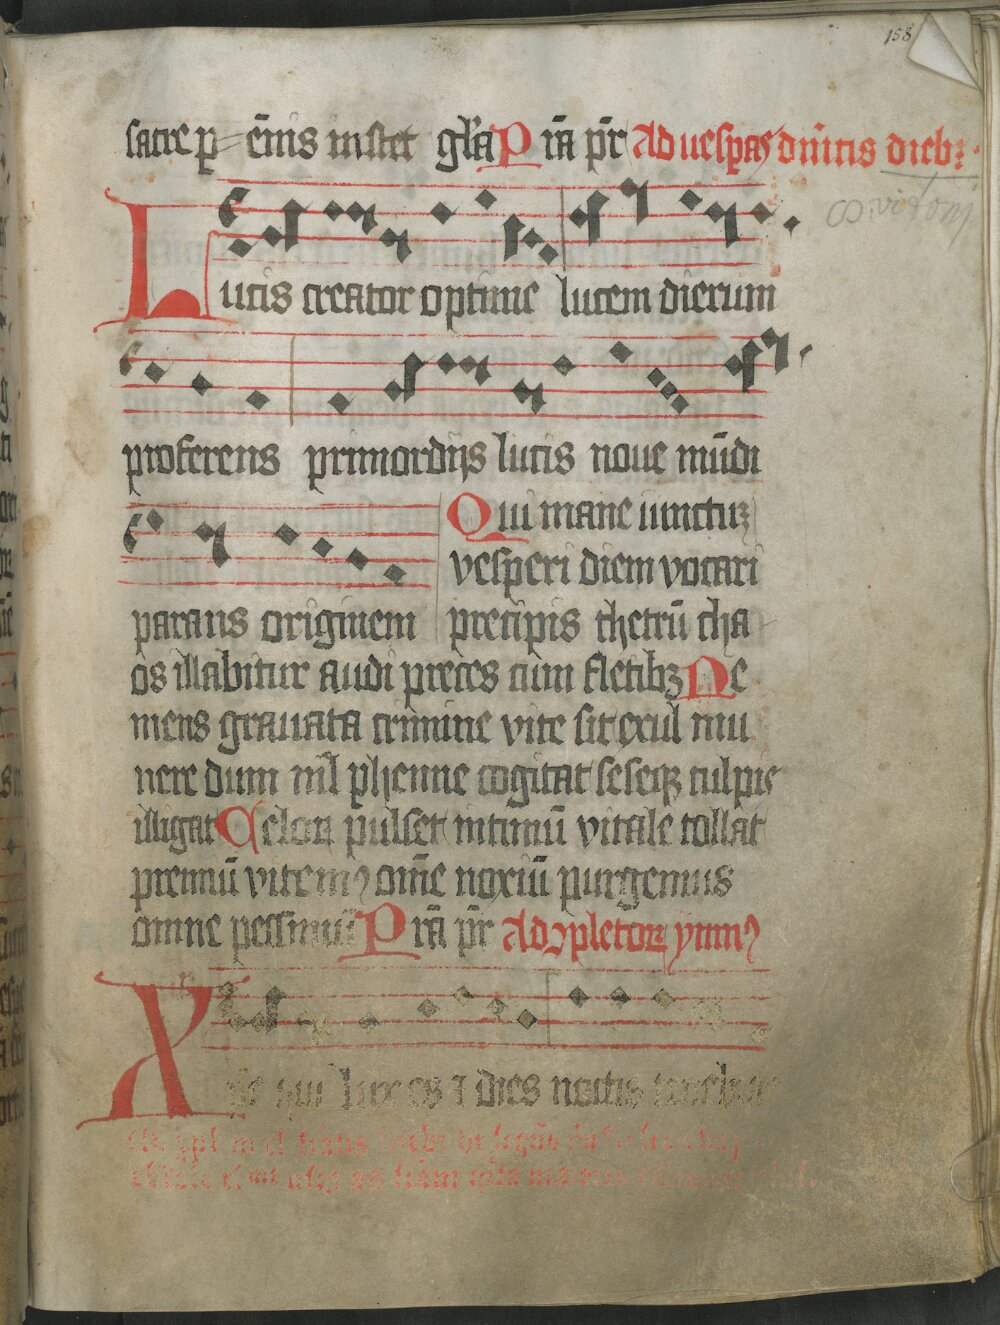 158
sacre p̱ ēnis instet gl̄a P r̄a pr̄ Ad uesp̱as dn̄icis dieb⁊
Lucis creator optime lucem dierum
proferens primordijs lucis noue mūdi
Qui mane iunctuꝫ
vesperi diem vocari
parans originem precipis thetrū cha
os illabitur audi preces cum fletibꝫ Ne
mens grauata crimine vite sit exul mu
nere dum nil̄ phenne cogitat seseqꝫ culpis
illigat Celoꝝ pulset intimū vitale tollat
premiū vitemꝰ om̄e noxiū purgemus
omne pessimū P r̄a pr̄ Ad ꝯpletoꝝ ymnꝰ
Xpē qui lux es ⁊ dies noctis tenebras